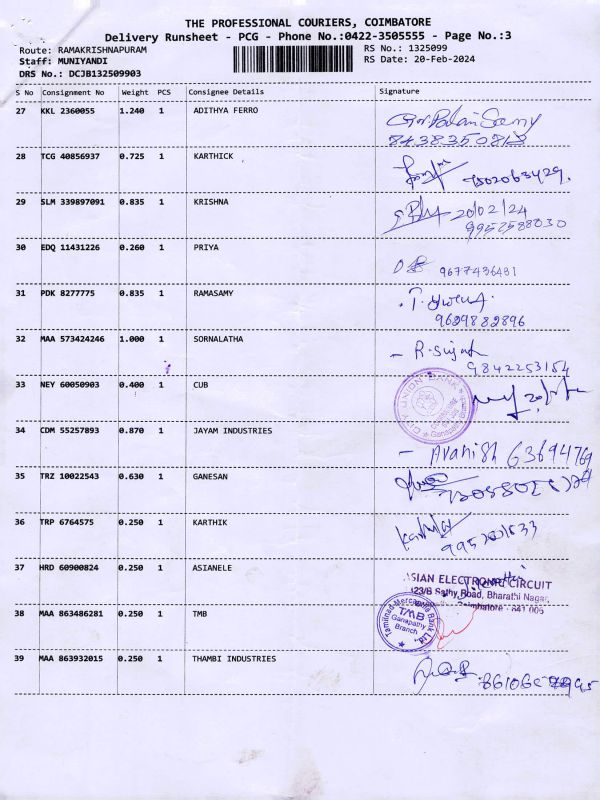 THE PROFESSIONAL COURIERS, COIMBATORE
Delivery Runsheet - PCG - Phone No.:0422-3505555 - Page No.:3
Route: RAMAKRISHNAPURAM
RS No.: 1325099
Staff: MUNIYANDI
RS Date: 20-Feb-2024
DRS No.: DCJB132509903
S No Consignment No Weight PCS Consignee Details Signature
27 KKL 2360055 1.240 1 ADITHYA FERRO
8438350813
28 TCG 40856937 0.725 1 KARTHICK
29 SLM 339897091 0.835 1 KRISHNA
20/02/24
9952588030
30 EDQ 11431226 0.260 1 PRIYA
9677436431
31 PDK 8277775 0.835 1 RAMASAMY
9629882896
32 MAA 573424246 1.000 1 SORNALATHA
- R. Sujat
9842253154
33 NEY 60050903 0.400 1 CUB
CITY UNION BANK
34 CDM 55257893 0.870 1 JAYAM INDUSTRIES
- Avanish 63694769
35 TRZ 10022543 0.630 1 GANESAN
36 TRP 6764575 0.250 1 KARTHIK
37 HRD 60900824 0.250 1 ASIANELE
ASIAN ELECTRONIC CIRCUIT
123/B Sathy Road, Bharathi Nagar,
Coimbatore - 641 006
38 MAA 863486281 0.250 1 TMB
Tamilnad Mercantile Bank Ltd.
TMB
Ganapathy
Branch
39 MAA 863932015 0.250 1 THAMBI INDUSTRIES